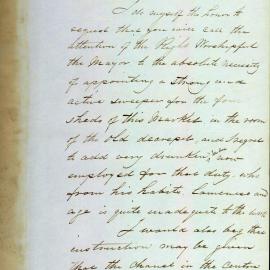 I do myself the honor to
request that you will call the
attention of the Right Worshipful
the Mayor to the absolute necessity
of appointing a strong and
active sweeper for the four
sheds of this Market in the room
of the old decrepit, and I regret
to add very drunken, now
employed for that duty. who
from his habits, lameness and
age is quite inadequate to the work
I would also beg that
instruction may be given
that the channel in the Centre